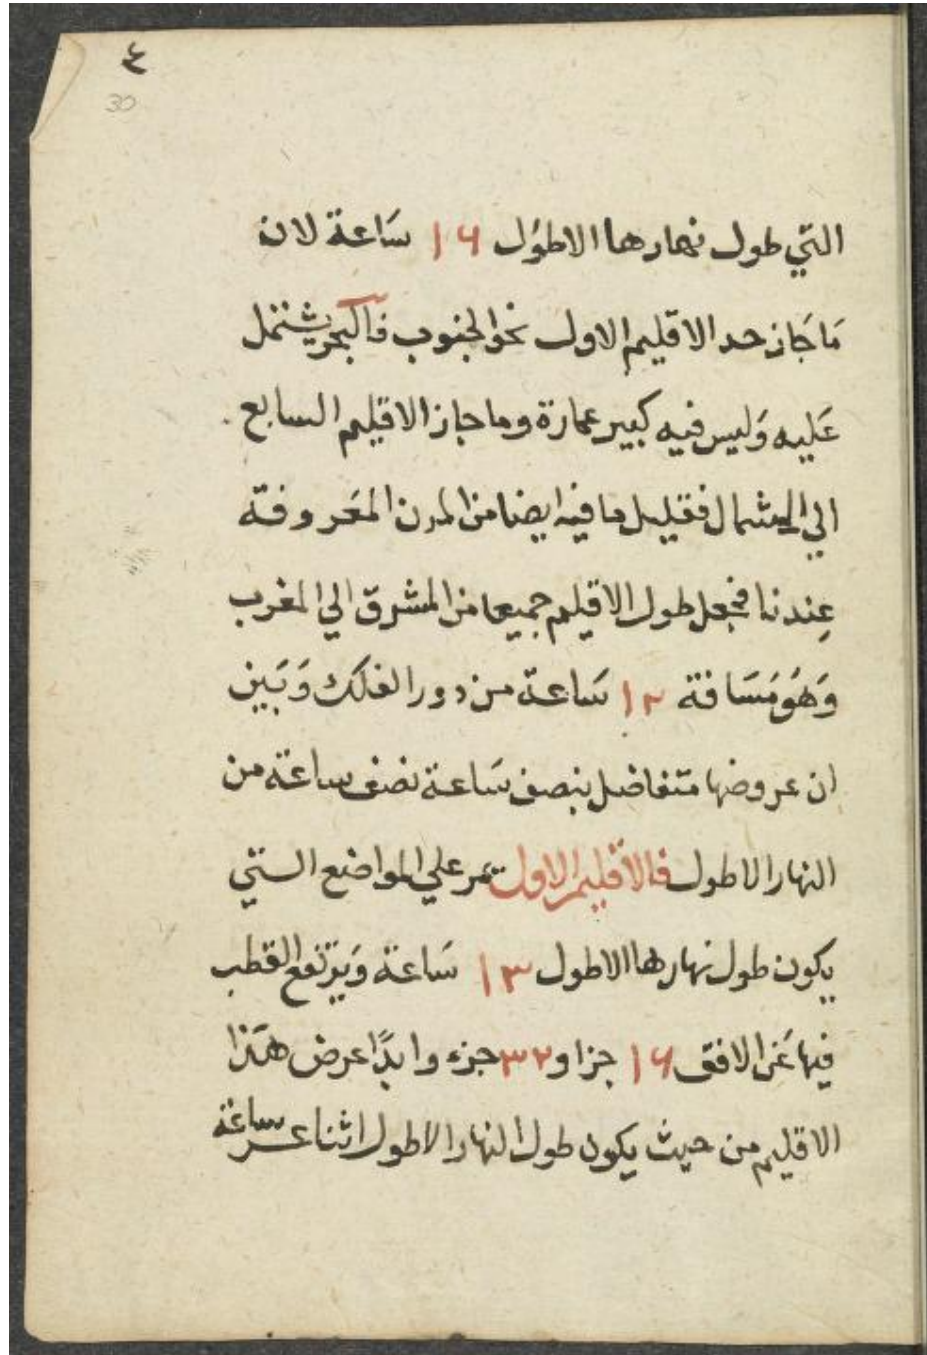 ٤
30
التي طول نهارها الاطول ١٦ ساعة لان
مَا جَاز حد الاقليم الاول نحو الجنوب فالبحر يشتمل
عَليه وَليس فيه كبير عمارة وما جاز الاقليم السابع
الي الشمال فقليل ما فيه ايضا من المدن المعَروفة
عِندنا فجعل طول الاقليم جميعا من المشرق الي المغرب
وَهوَ مَسَافة ١٢ سَاعة من دور الفلك وَبَين
ان عروضها متفاضل بنصف سَاعة نصف ساعة من
النهار الاطول فالاقليم الاول تمر علي المواضع التي
يكون طول نهارها الاطول ١٣ سَاعة وَيرتفع القطب
فيها عَن الافق ١٦ جزا و ٣٢ جزء وابدًا عرض هَذا
الاقليم من حيث يكون طول النهار الاطول اثنا عشر ساعة